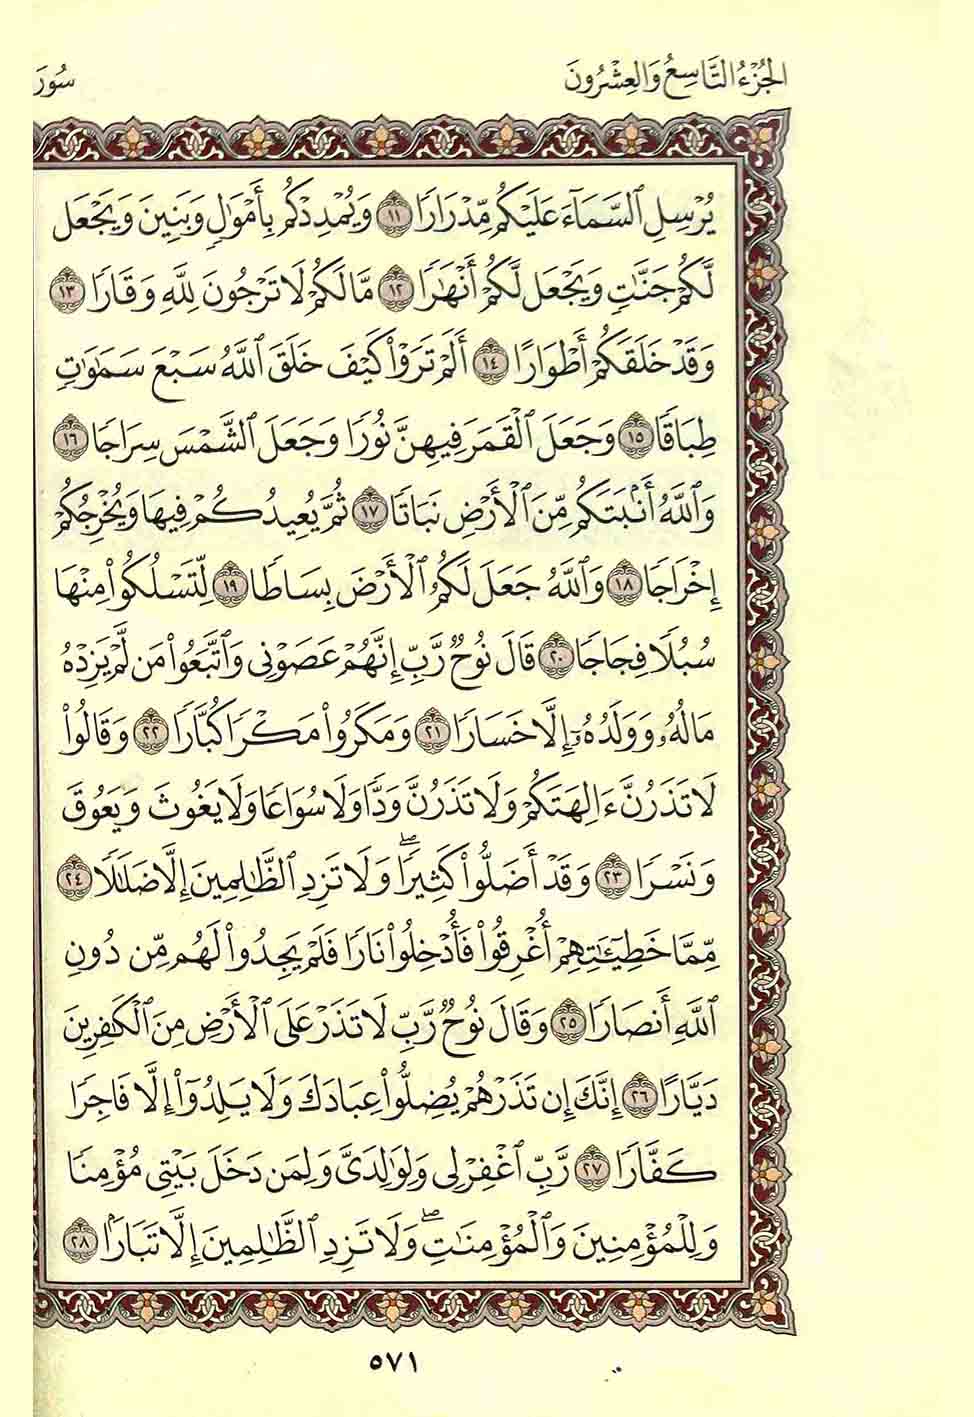 الجُزْءُ التَّاسِعُ وَالعِشْرُونَ
سُورَ
يُرْسِلِ ٱلسَّمَآءَ عَلَيْكُم مِّدْرَارًا ١١ وَيُمْدِدْكُم بِأَمْوَٰلٍ وَبَنِينَ وَيَجْعَل
لَّكُمْ جَنَّـٰتٍ وَيَجْعَل لَّكُمْ أَنْهَـٰرًا ١٢ مَّا لَكُمْ لَا تَرْجُونَ لِلَّهِ وَقَارًا ١٣
وَقَدْ خَلَقَكُمْ أَطْوَارًا ١٤ أَلَمْ تَرَوْا۟ كَيْفَ خَلَقَ ٱللَّهُ سَبْعَ سَمَـٰوَٰتٍ
طِبَاقًا ١٥ وَجَعَلَ ٱلْقَمَرَ فِيهِنَّ نُورًا وَجَعَلَ ٱلشَّمْسَ سِرَاجًا ١٦
وَٱللَّهُ أَنۢبَتَكُم مِّنَ ٱلْأَرْضِ نَبَاتًا ١٧ ثُمَّ يُعِيدُكُمْ فِيهَا وَيُخْرِجُكُمْ
إِخْرَاجًا ١٨ وَٱللَّهُ جَعَلَ لَكُمُ ٱلْأَرْضَ بِسَاطًا ١٩ لِّتَسْلُكُوا۟ مِنْهَا
سُبُلًا فِجَاجًا ٢٠ قَالَ نُوحٌ رَّبِّ إِنَّهُمْ عَصَوْنِى وَٱتَّبَعُوا۟ مَن لَّمْ يَزِدْهُ
مَالُهُۥ وَوَلَدُهُۥٓ إِلَّا خَسَارًا ٢١ وَمَكَرُوا۟ مَكْرًا كُبَّارًا ٢٢ وَقَالُوا۟
لَا تَذَرُنَّ ءَالِهَتَكُمْ وَلَا تَذَرُنَّ وَدًّا وَلَا سُوَاعًا وَلَا يَغُوثَ وَيَعُوقَ
وَنَسْرًا ٢٣ وَقَدْ أَضَلُّوا۟ كَثِيرًا ۖ وَلَا تَزِدِ ٱلظَّـٰلِمِينَ إِلَّا ضَلَـٰلًا ٢٤
مِّمَّا خَطِيٓـَٔـٰتِهِمْ أُغْرِقُوا۟ فَأُدْخِلُوا۟ نَارًا فَلَمْ يَجِدُوا۟ لَهُم مِّن دُونِ
ٱللَّهِ أَنصَارًا ٢٥ وَقَالَ نُوحٌ رَّبِّ لَا تَذَرْ عَلَى ٱلْأَرْضِ مِنَ ٱلْكَـٰفِرِينَ
دَيَّارًا ٢٦ إِنَّكَ إِن تَذَرْهُمْ يُضِلُّوا۟ عِبَادَكَ وَلَا يَلِدُوٓا۟ إِلَّا فَاجِرًا
كَفَّارًا ٢٧ رَّبِّ ٱغْفِرْ لِى وَلِوَٰلِدَىَّ وَلِمَن دَخَلَ بَيْتِىَ مُؤْمِنًا
وَلِلْمُؤْمِنِينَ وَٱلْمُؤْمِنَـٰتِ ۖ وَلَا تَزِدِ ٱلظَّـٰلِمِينَ إِلَّا تَبَارًۢا ٢٨
٥٧١